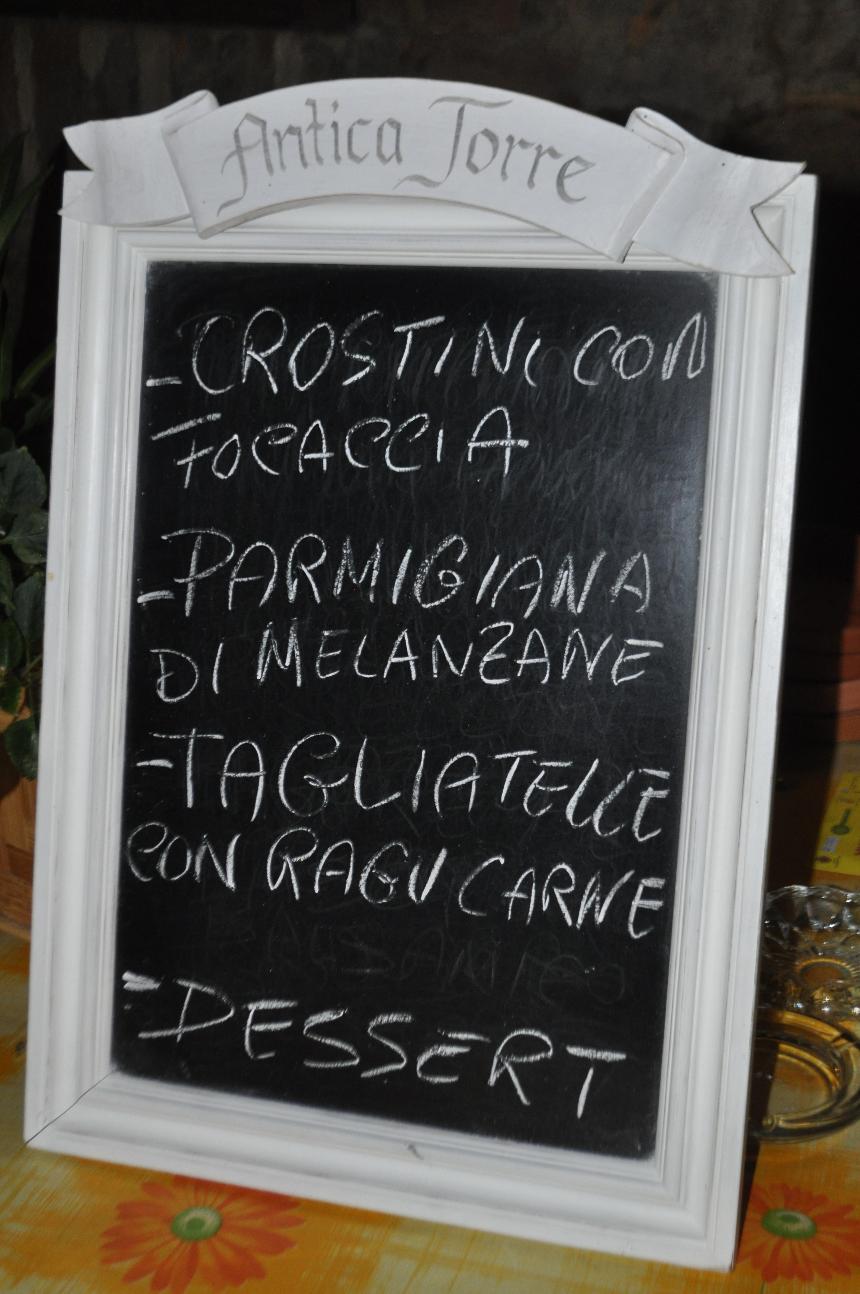 Antica Torre
-CROSTINI CON
FOCACCIA
-PARMIGIANA
DI MELANZANE
-TAGLIATELLE
CON RAGU CARNE
-DESSERT